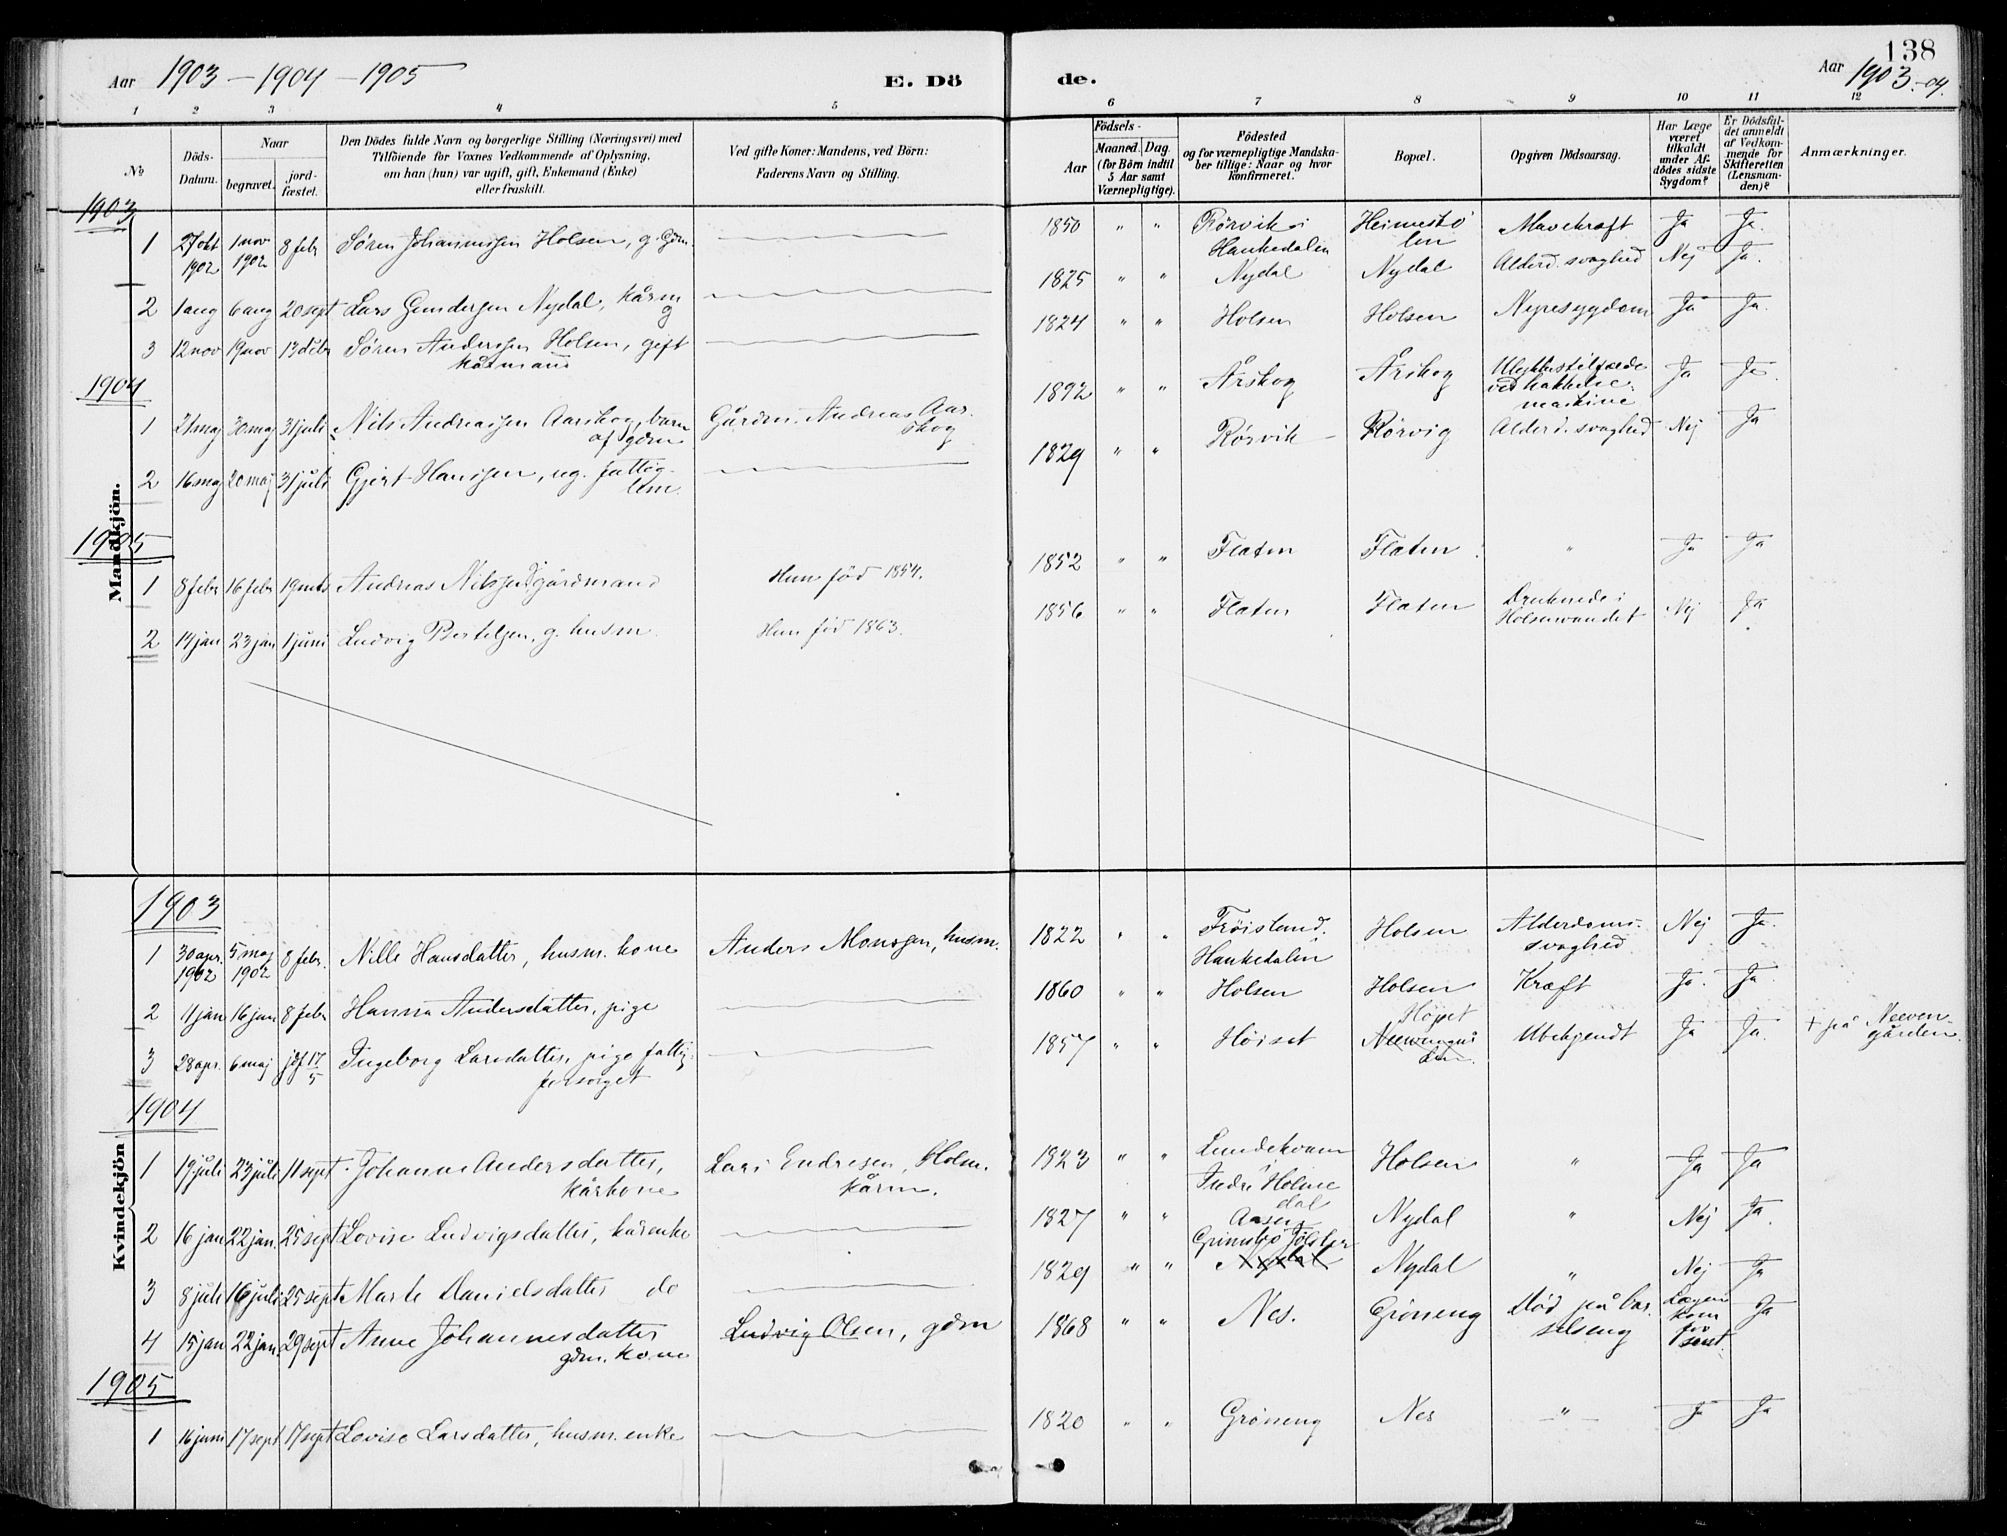 138
Aar 1903 – 1904 – 1905
E. Dö
de.
Aar 1903.-04.
1 2 3 4 5 6 7 8 9 10 11 12
No
Döds-Datum.
Naar
begravet.
jord-fæstet.
Den Dödes fulde Navn og borgerlige Stilling (Næringsvei) med
Tilföiende for Voxnes Vedkommende af Oplysning,
om han (hun) var ugift, gift, Enkemand (Enke)
eller fraskilt.
Ved gifte Koner: Mandens, ved Börn:
Faderens Navn og Stilling.
Födsels-
Aar
Maaned. Dag.
(for Börn indtil
5 Aar samt
Værnepligtige).
Födested
og for værnepligtige Mandska-
ber tillige: Naar og hvor
konfirmeret.
Bopæl.
Opgiven Dödsaarsag.
Har Læge
været
tilkaldt
under Af-
dödes sidste
Sygdom?
Er Dödsfal-
det anmeldt
af Vedkom-
mende for
Skifteretten
(Lensman-
den)?
Anmærkninger.
Mandkjön.
1903
1 27 okt 1902 1 nov 1902 8 febr Søren Johannessen Holsen, g. gdm 1850 " " Rørvik i Haukedalen Heimestølen Mavekræft Ja Ja.
2 1 aug 6 aug 20 sept Lars Gundersen Nydal, kårm g 1825 " " Nydal Nydal Alderd. svaghed Nej Ja.
3 12 nov 19 nov 13 debr Søren Anderssen Holsen, gift kårmand 1824 " " Holsen Holsen Nyresygdom Ja Ja.
1904
1 21 maj 30 maj 31 juli Nils Andreassen Aarskog, barn af gdm Gårdm. Andreas Aarskog 1892 " " Årskog Årskog Ulykkestilfælde ved hakkelsemaskine Ja Ja.
2 16 maj 20 maj 31 juli Gjert Hanssen, ug. fattiglem. 1829 " " Rørvik Rørvig Alderd. svaghed Nej Ja
1905
1 8 febr 16 febr 19 mts Andreas Nilssen gårdmand Hun fød 1854. 1852 " " Flaten Flaten " Ja Ja
2 14 jan 23 jan 1 juni Ludvig Bertelsen, g. husm. Hun fød 1863. 1856 " " Flaten Flaten Druknede i Holsenvandet Nej Ja.
Kvindekjön
1903
1 30 apr. 1902 5 maj 1902 8 febr. Nille Hansdatter, husm. kone Anders Monssen, husm. 1822 " " Frøisland, Haukedalen Holsen Alderdomssvaghed Nej Ja.
2 11 jan 16 jan 8 febr Hanna Andersdatter, pige 1860 " " Holsen Holsen Kræft Ja. Ja.
3 28 apr. 6 maj jdf 17/5 Ingeborg Larsdatter, pige fattigforsørget 1857 " " Høiset Høiset Ubekjendt Ja Ja. + på Neevengården.
1904
1 19 juli 23 juli 11 sept. Johanne Andersdatter, kårkone Lars Endresen, Holsn. kårm. 1823 " " Lundekvam i Indre Holmedal Holsen " Ja Ja
2 16 jan 22 jan. 25 sept Lovise Ludvigsdatter, kårenke 1827 " " Aasen Nydal " Nej Ja.
3 8 juli 16 juli 25 sept Marte Danielsdatter do 1829 " " Grimsbø Jølster Nydal Nydal " Nej Ja
4 15 jan 22 jan. 29 sept Anne Johannesdatter gdm. kone Ludvig Olsen, gdm 1868 " " Nes. Grøneng Død på barselseng Lægen kom for sent. Ja
1905
1 16 juni 17 sept 17 sept Lovise Larsdatter, husm. enke 1820 " " Grøneng Nes – " – Ja Ja